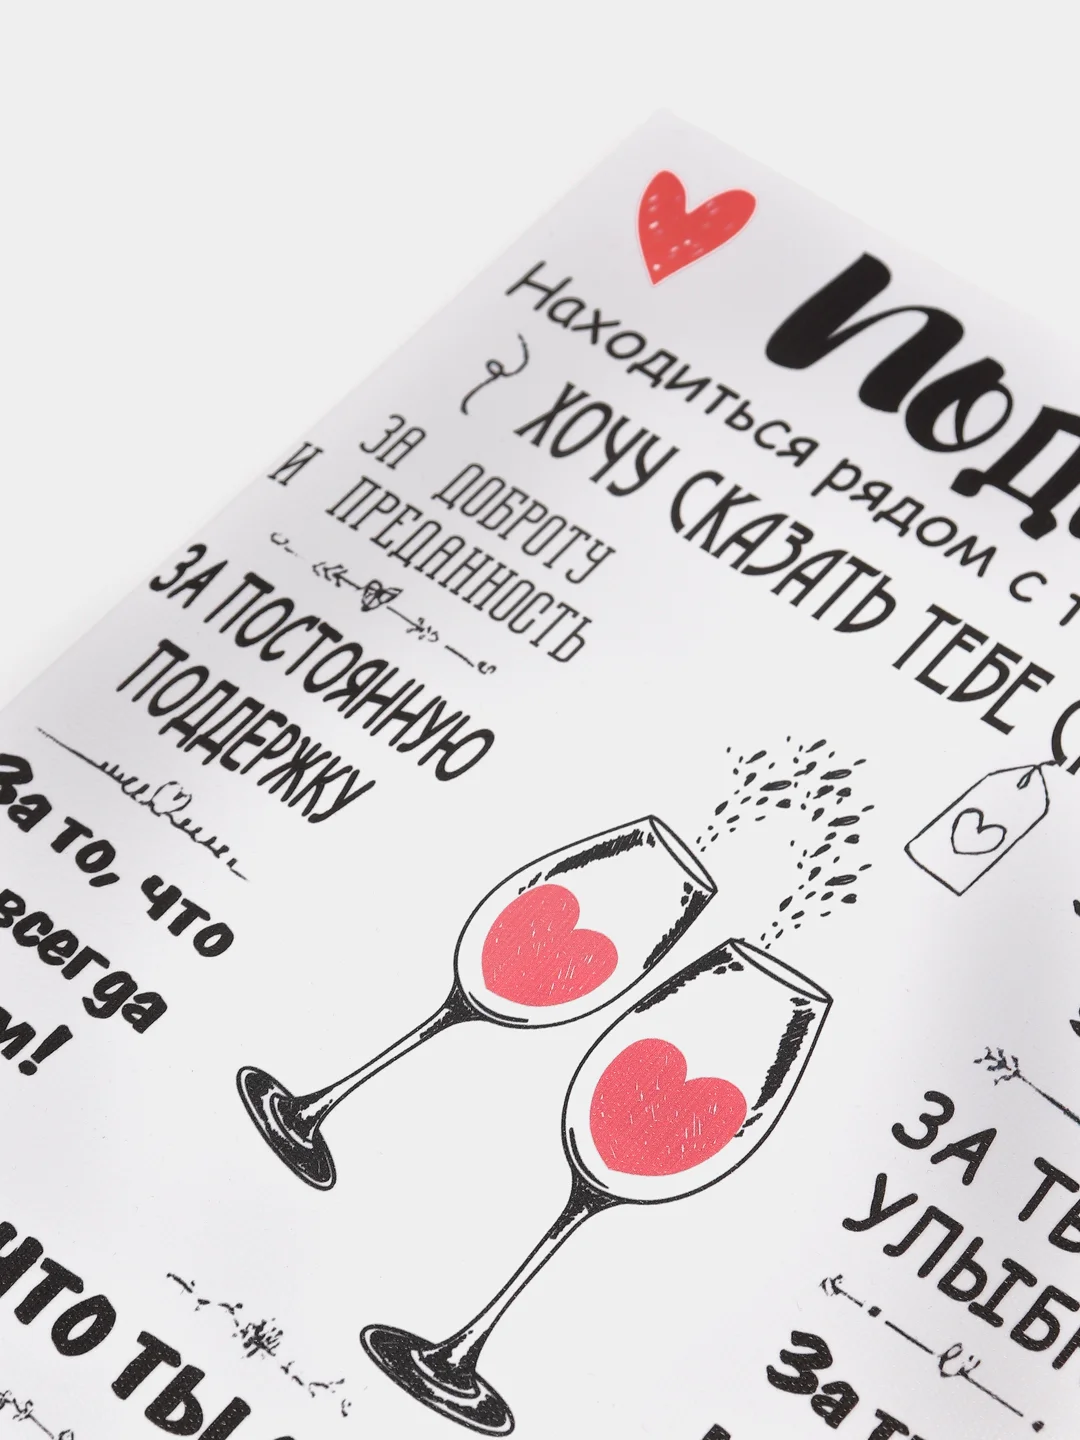 Находиться рядом с
ХОЧУ СКАЗАТЬ ТЕБЕ
ЗА ДОБРОТУ
И ПРЕДАННОСТЬ
ЗА ПОСТОЯННУЮ
ПОДДЕРЖКУ
За то, что
всегда
ЗА
УЛЫБ
ЧТО ТЫ